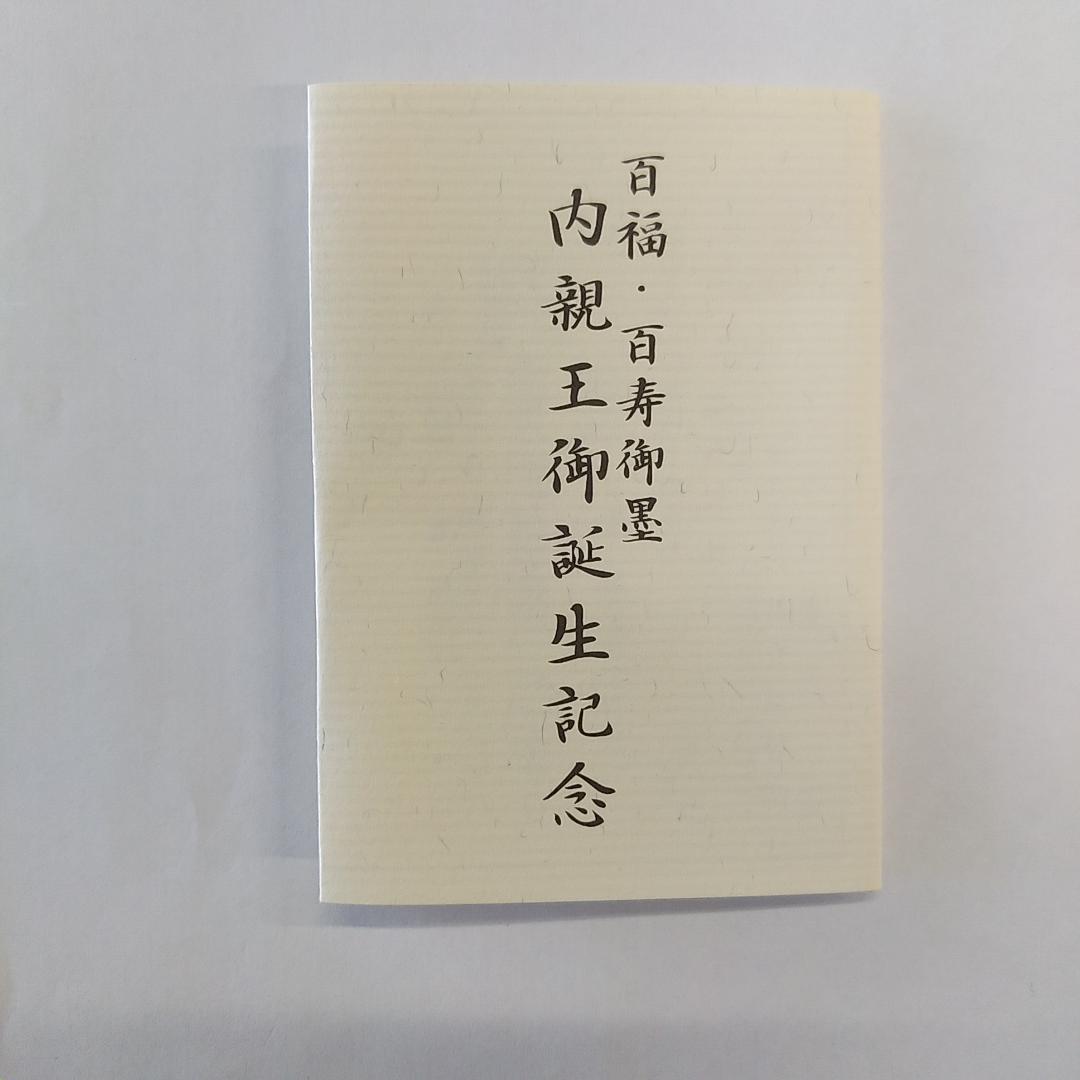 百福・百寿御墨
内親王御誕生記念